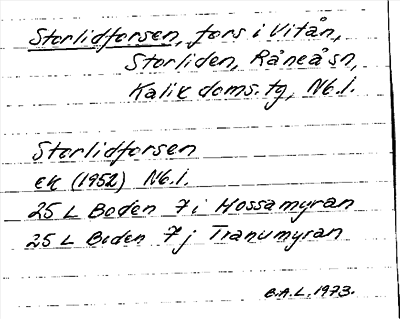 Storlidforsen, fors i Vitån,
Storliden, Råneå sn,
Kalix doms. tg, Nb.l.
Storlidforsen
ek (1952) Nb.l.
25 L Boden 7 i Hossamyran
25 L Boden 7 j Tranumyran
E.A.L. 1973.